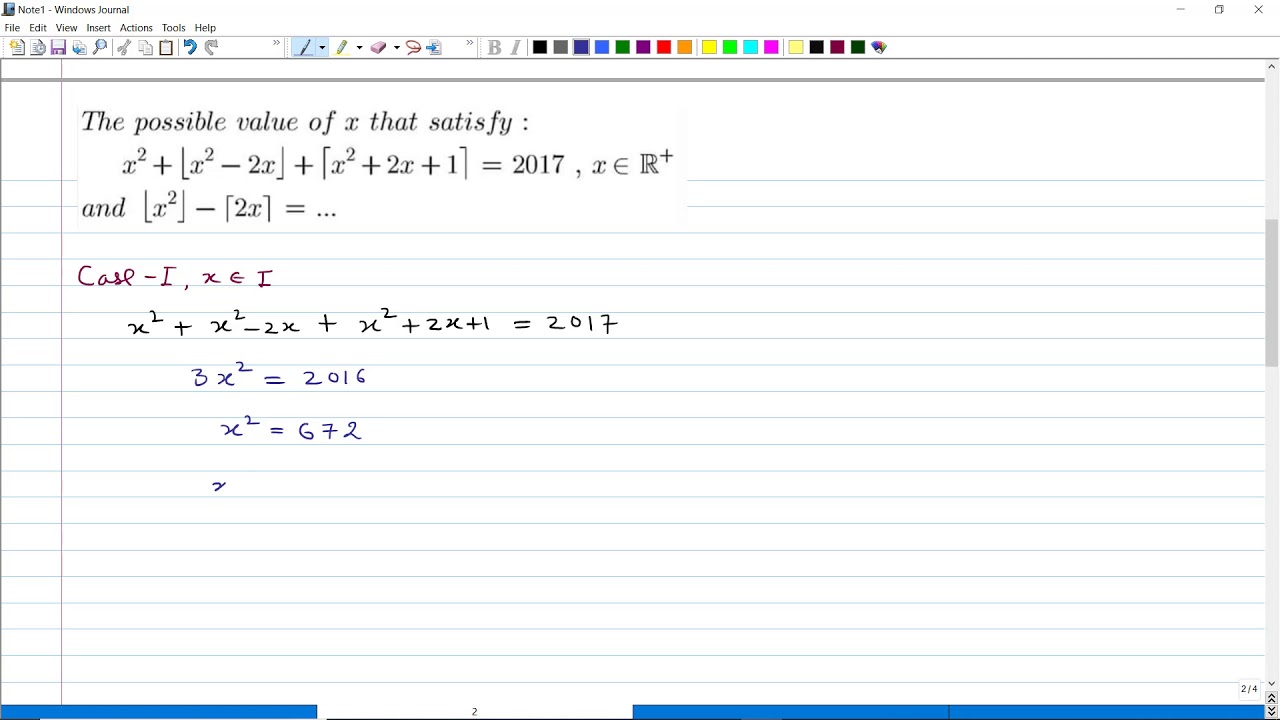 Note1 - Windows Journal
File Edit View Insert Actions Tools Help
B I
The possible value of x that satisfy :
x² + ⌊x² − 2x⌋ + ⌈x² + 2x + 1⌉ = 2017 , x ∈ ℝ⁺
and ⌊x²⌋ − ⌈2x⌉ = ...
Case - I , x ∈ I
x² + x² - 2x + x² + 2x + 1 = 2017
3x² = 2016
x² = 672
x
2 / 4
2